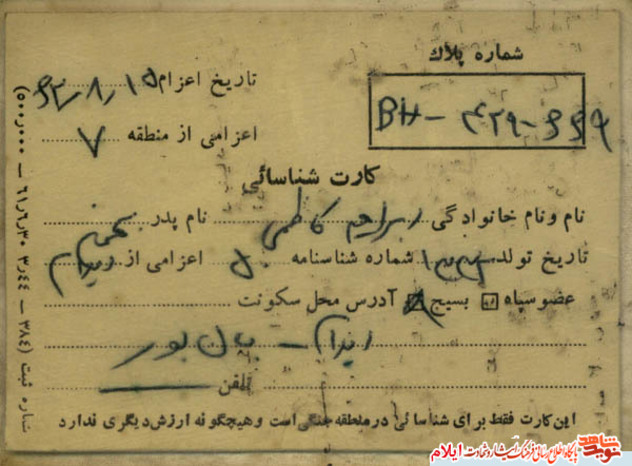 شماره پلاک
BH - ۴۲۹ - ۶۶۹
تاریخ اعزام ۶۳/۸/۱۵
اعزامی از منطقه ۷
کارت شناسائی
نام و نام خانوادگی ابراهیم کاظمی نام پدر
تاریخ تولد شماره شناسنامه اعزامی از ایلام
عضو سپاه بسیج آدرس محل سکونت
ایلام -
تلفن
این کارت فقط برای شناسائی در منطقه جنگی است و هیچگونه ارزش دیگری ندارد
شماره ثبت (۳۸۴ – ۳٫۴۴ – ۶۱٫۶٫۳۰ – ۵۰۰٫۰۰۰)
نوید شاهد
پایگاه اطلاع رسانی فرهنگ ایثار و شهادت ایلام